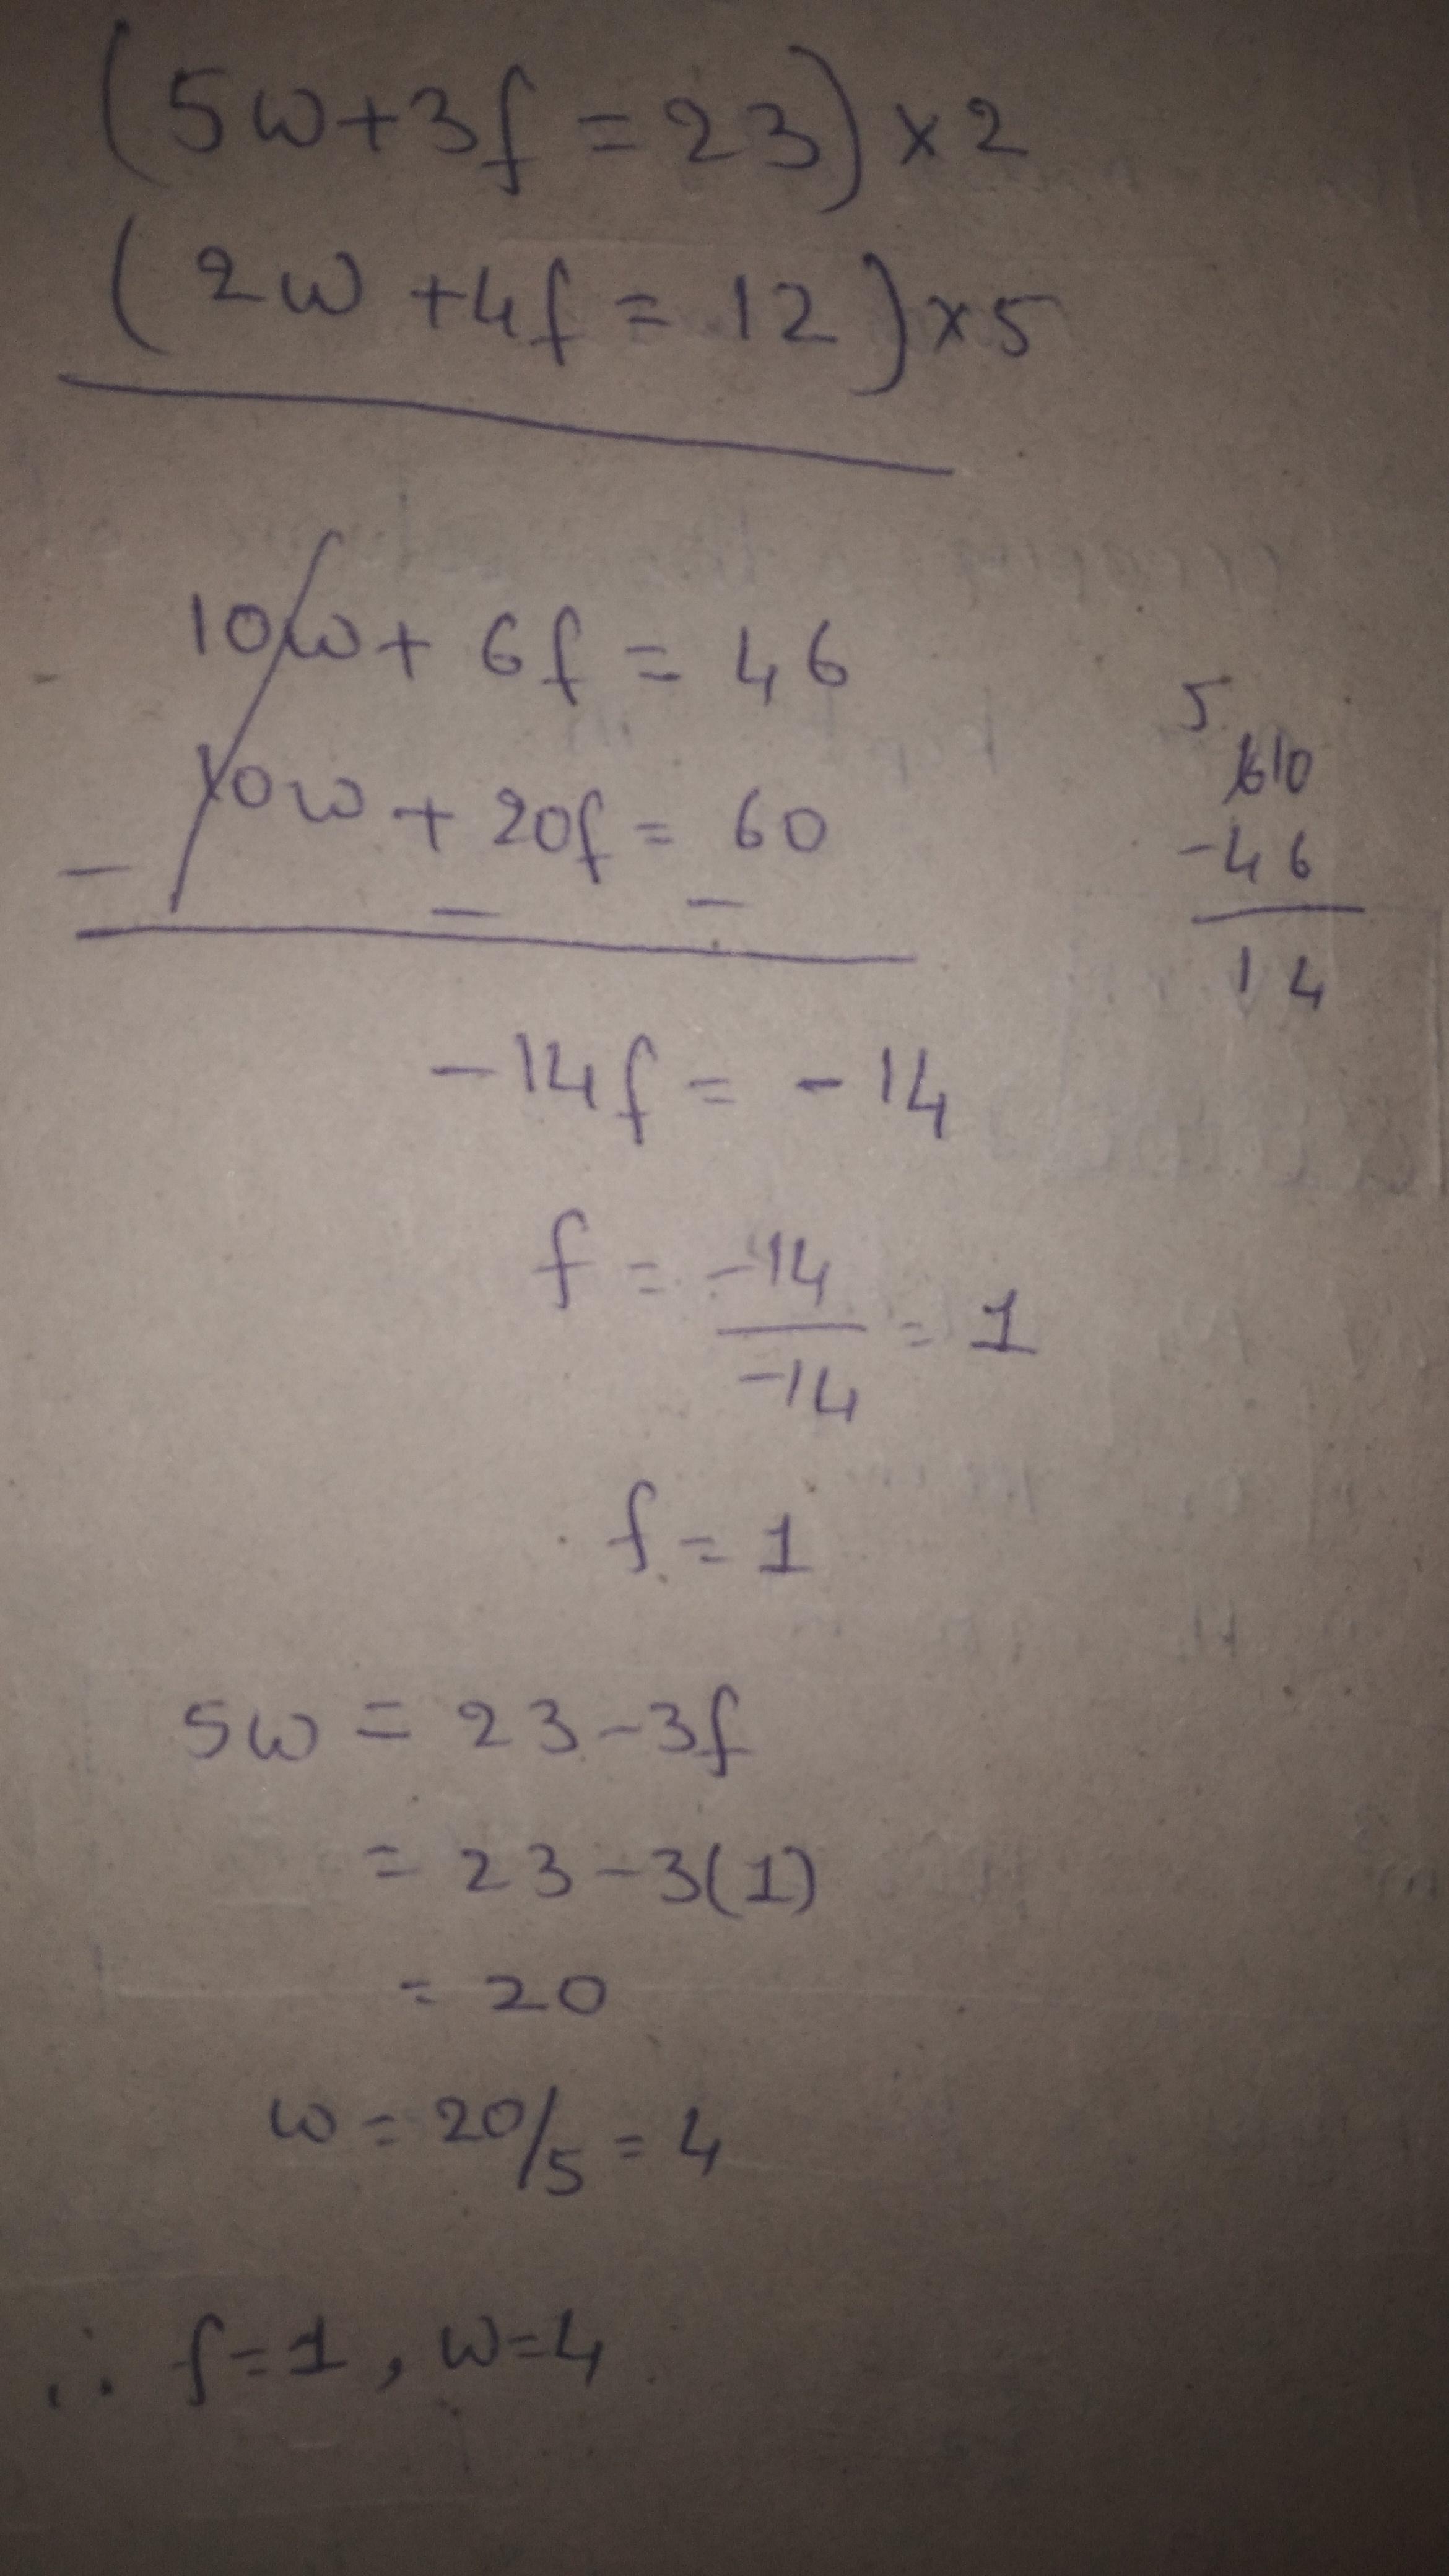 (5w+3f=23)×2
(2w+4f=12)×5
10w+6f=46
10w+20f=60
- - -
5
610
-46
14
-14f=-14
f=-14/-14=1
f=1
5w=23-3f
=23-3(1)
=20
w=20/5=4
∴ f=1, w=4